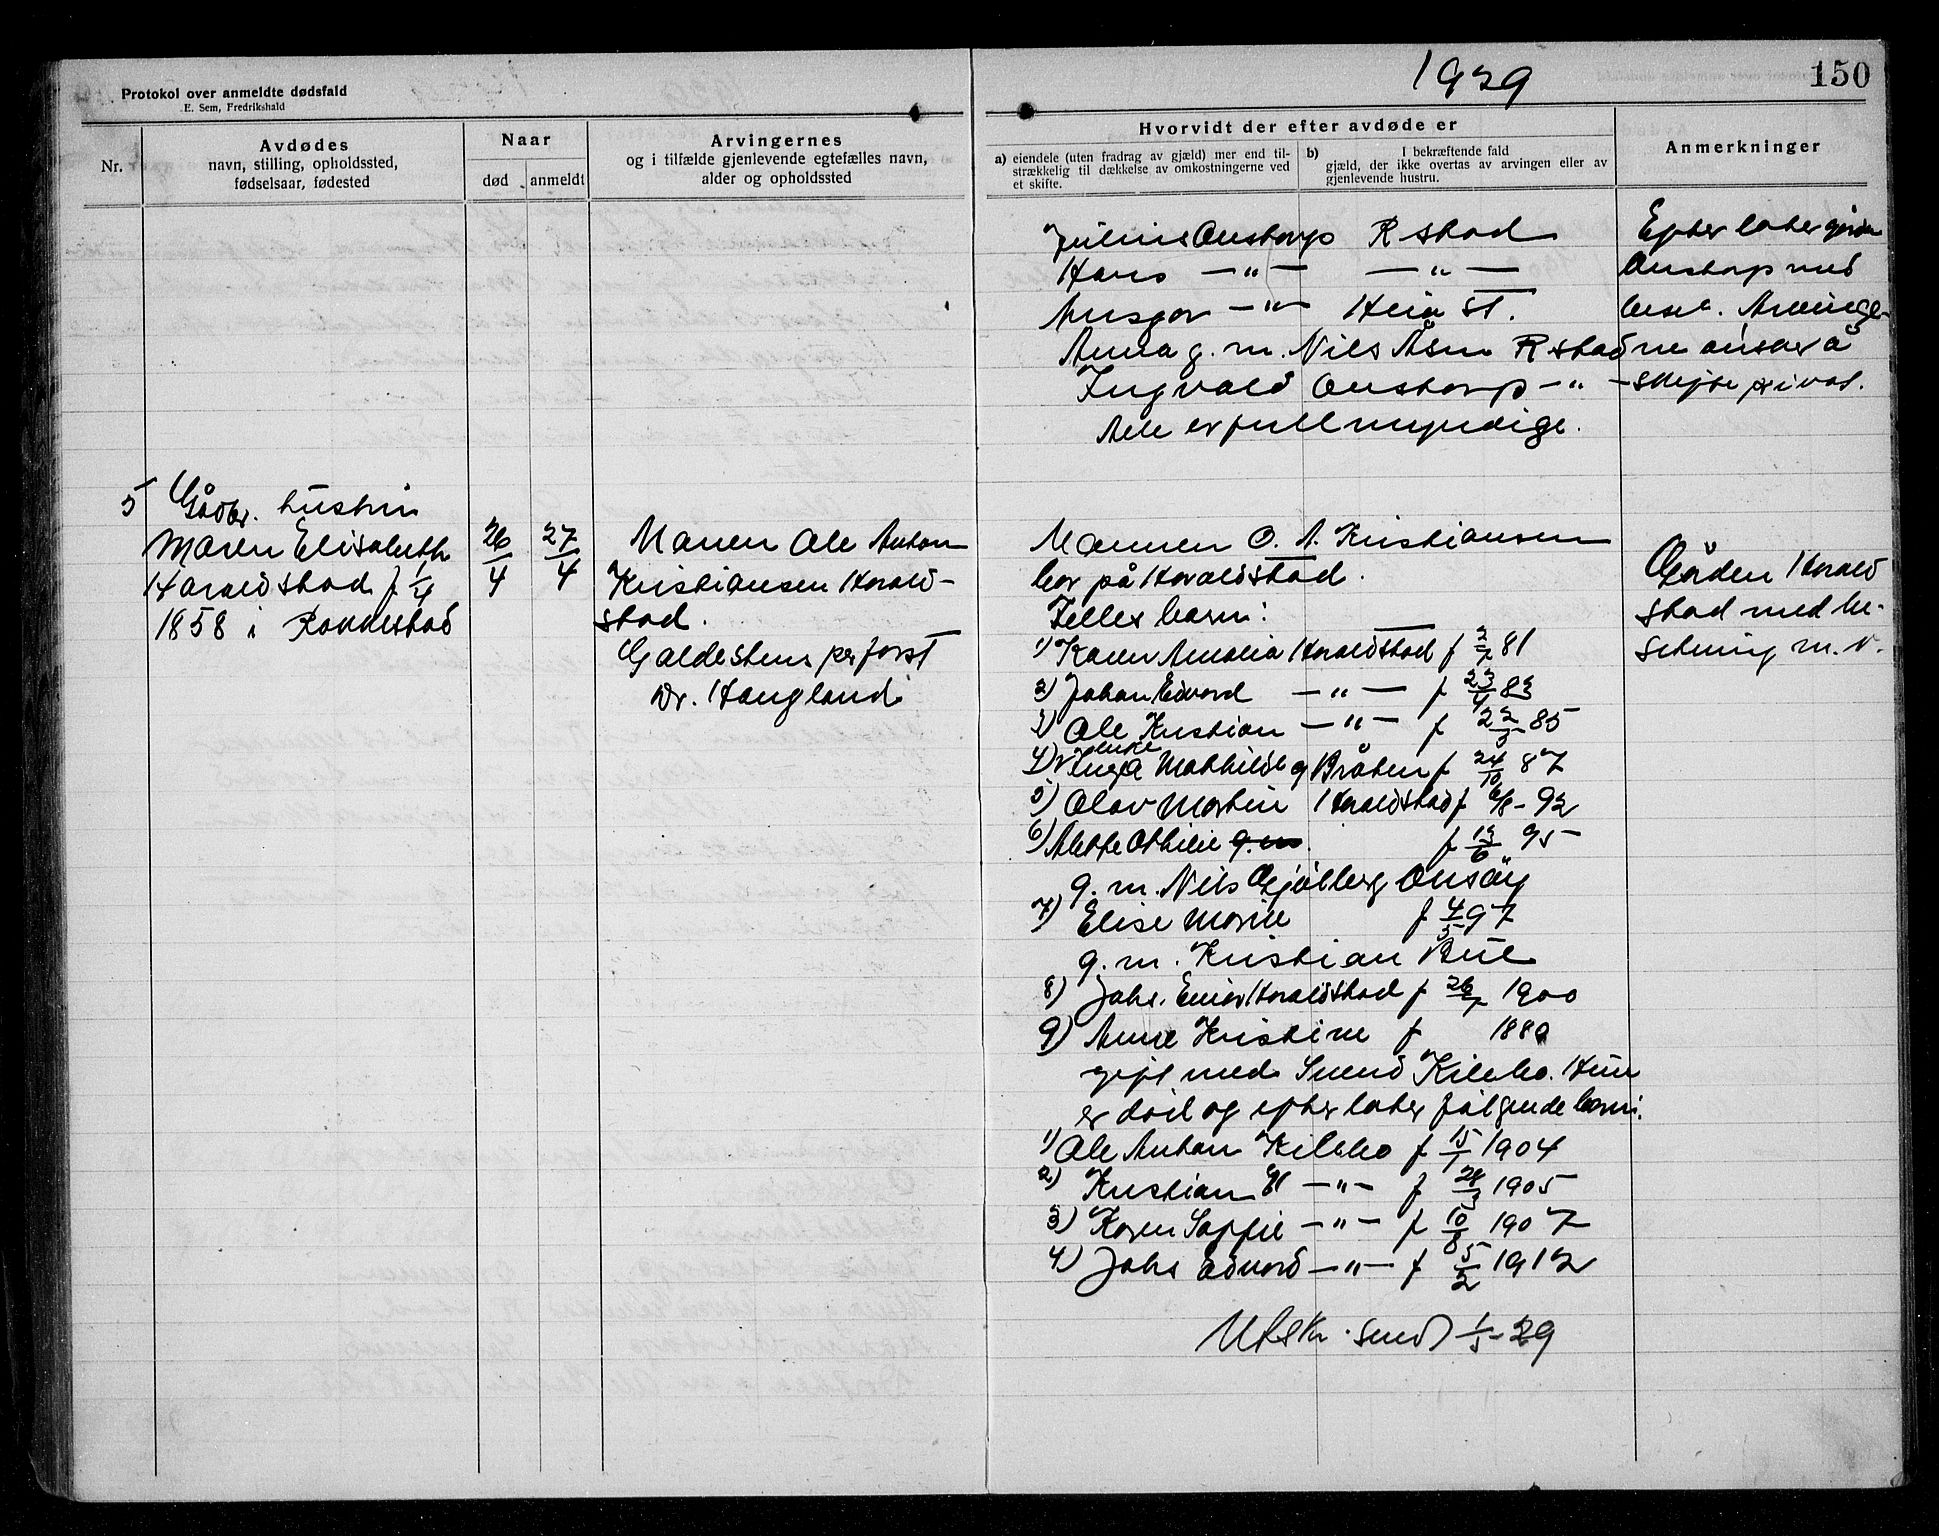 Protokol over anmeldte dødsfald
E. Sem, Fredrikshald
1929
150
Nr.
Avdødes
navn, stilling, opholdssted,
fødselsaar, fødested
Naar
død
anmeldt
Arvingernes
og i tilfælde gjenlevende egtefælles navn,
alder og opholdssted
Hvorvidt der efter avdøde er
a) eiendele (uten fradrag av gjæld) mer end til-
strækkelig til dækkelse av omkostningerne ved
et skifte.
b) I bekræftende fald
gjæld, der ikke overtas av arvingen eller av
gjenlevende hustru.
Anmerkninger
Julius Austorp R stad
Hans —"— —"—
Ansgar —"— Heia st.
Anna g. m. Nils Åsen R stad
Ingvald Oustorp —"—
Alle er fullmyndige.
Efterlater gården
Oustorp med
bes. Arvinge-
ne ønsker å
skifte privat.
5
Gårdbr. hustru
Maren Elisabeth
Haraldstad f 1/4
1858 i Rakkestad
26/4
27/4
Mannen Ole Anton
Kristiansen Harald-
stad.
Galdestens per forst
Dr. Haugland
Mannen O. A. Kristiansen
bor på Haraldstad.
Felles barn:
1) Karen Amalia Haraldstad f 2/7 81
2) Johan Edvard —"— f 23/4 83
3) Ole Kristian —"— f 22/3 85
4) enke Inga Mathilde Bråten f 24/10 87
5) Olav Martin Haraldstad f 6/8 - 92
6) Alette Othilie g. m. f 12/6 95
g. m. Nils Gjølberg Onsøy
7) Elise Marie f 4/5 97
g. m. Kristian Bue
8) Johs. Einar Haraldstad f 26/7 1900
9) Anne Kristine f 1880
gift med Svend Kilebo. Hun
er död og efterlater følgende barn:
1) Ole Anton Kilebo f 15/1 1904
2) Kristian H —"— f 28/3 1905
3) Karen Soffie —"— f 10/8 1907
4) Johs Edvard —"— f 5/2 1912
Utskr. send 1/5 - 29
Gården Harald
stad med be-
setning m. v.